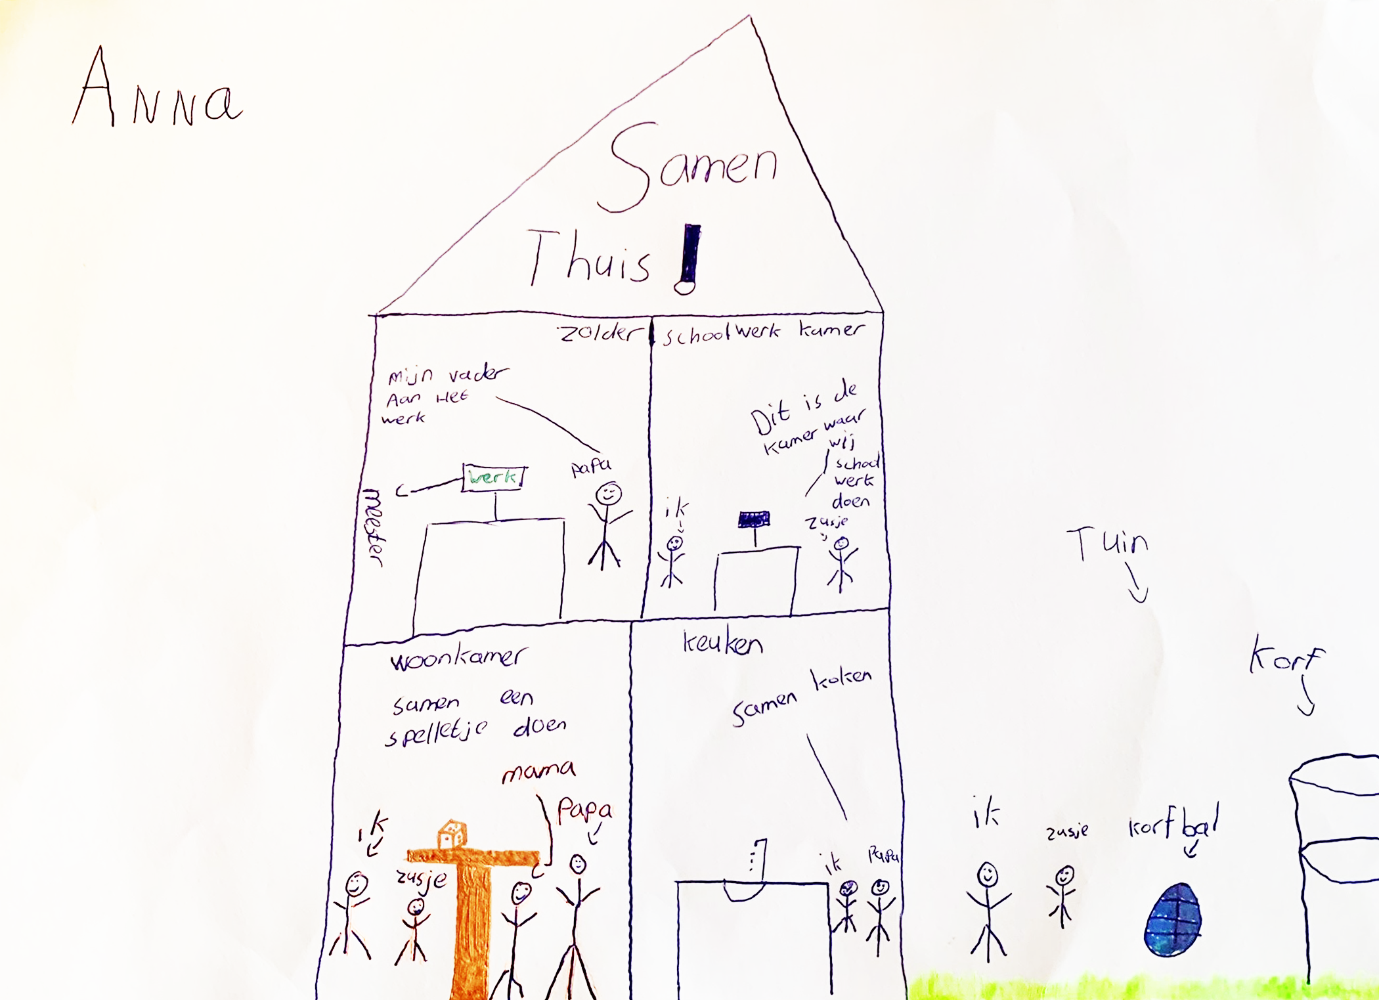 Anna
Samen
Thuis!
zolder
schoolwerk kamer
Mijn vader
Aan Het
werk
papa
werk
meester
Dit is de
kamer waar
wij
school
werk
doen
ik
zusje
woonkamer
samen een
spelletje doen
mama
papa
ik
zusje
keuken
samen koken
ik
papa
Tuin
korf
ik
zusje
korfbal